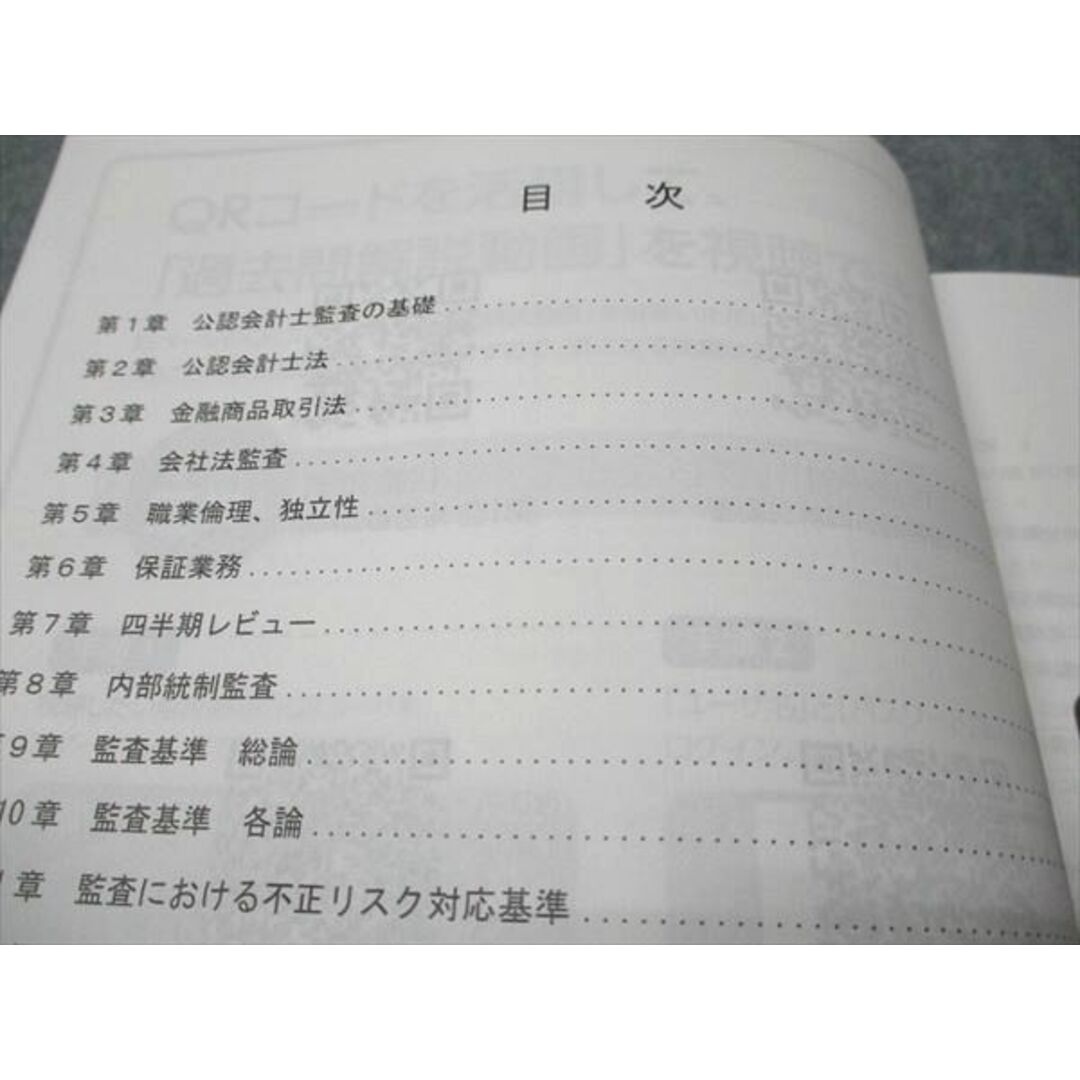 目 次
第1章 公認会計士監査の基礎
第2章 公認会計士法
第3章 金融商品取引法
第4章 会社法監査
第5章 職業倫理、独立性
第6章 保証業務
第7章 四半期レビュー
第8章 内部統制監査
9章 監査基準 総論
10章 監査基準 各論
1章 監査における不正リスク対応基準
QRコードを活用して、
「過去問解説動画」を視聴